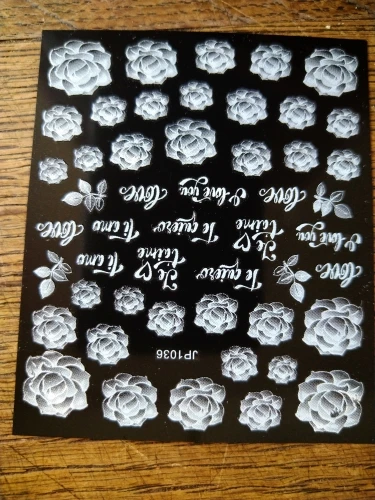 JP1036
love
Te quiero
Je
t'aime
Ti amo
I love you
Je
t'aime
Te quiero
Ti amo
love
love
I love you
love